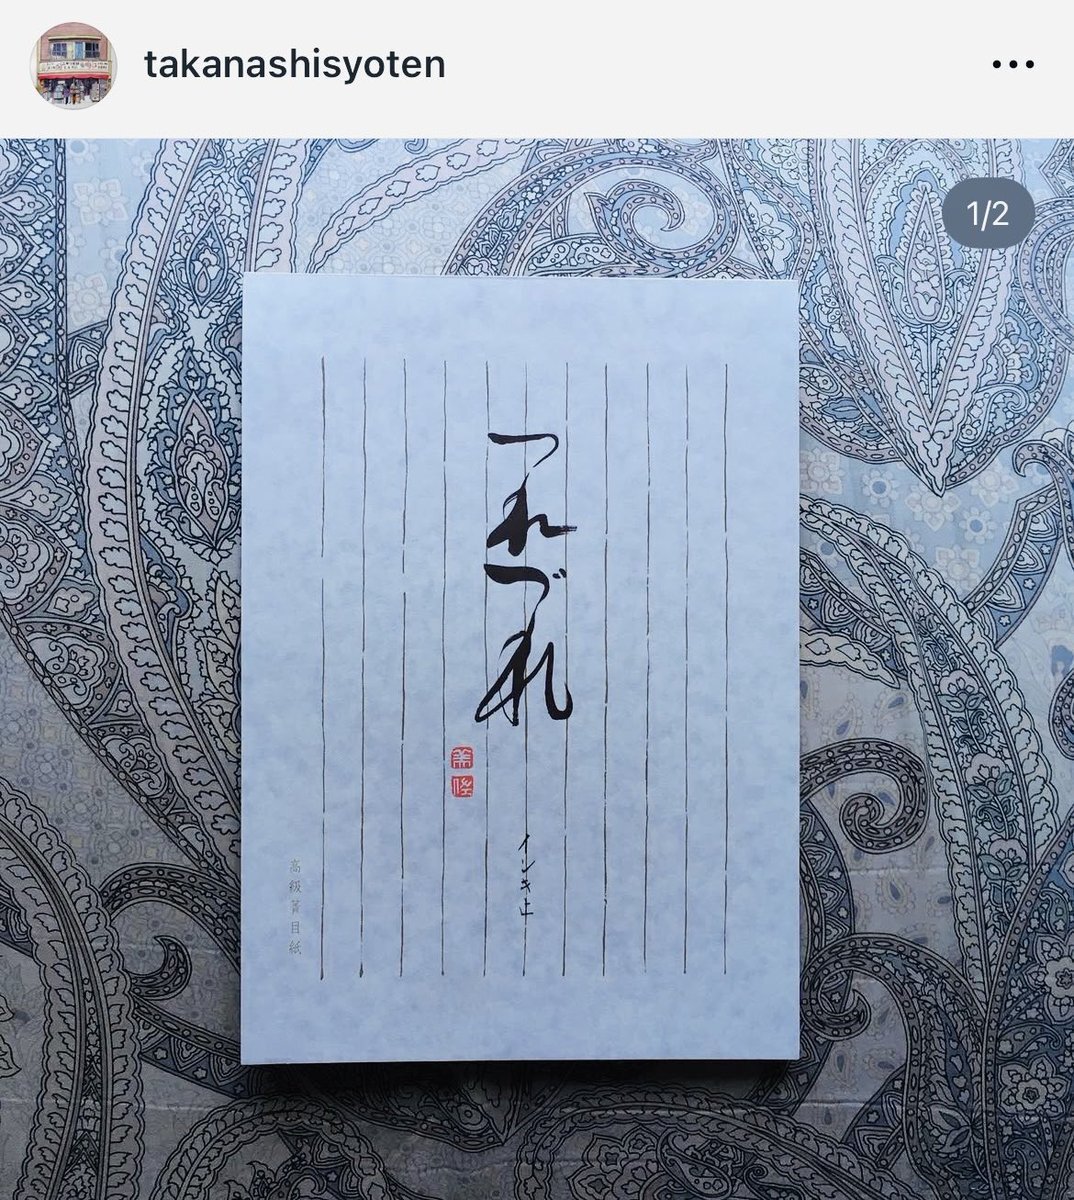 takanashisyoten
1/2
つれづれ
インキ止
高級箋目紙